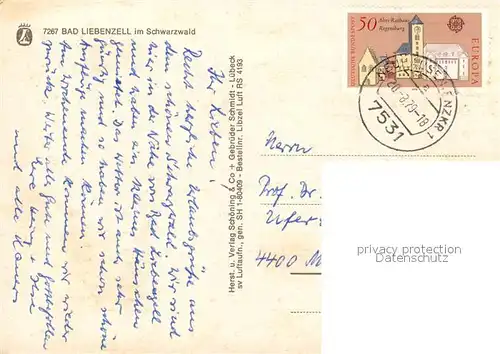 7267 BAD LIEBENZELL im Schwarzwald
Ihr Lieben!
Recht herzliche Urlaubsgrüße aus
dem schönen Schwarzwald. Wir sind
hier in der Nähe von Bad Liebenzell
und haben ein kleines Häuschen
gemietet. Das Wetter ist auch sehr
günstig und so haben wir schon schöne
Ausflüge machen können.
Am Wochenende kommen wir wieder
zurück. Weiter alles Gute und
und alle
Herst. u. Verlag Schöning & Co + Gebrüder Schmidt - Lübeck
sv Luftaufn., gen. SH 1-80409 - Bestellnr. Libzel Luft RS 4193
50
Altes Rathaus
Regensburg
EUROPA
DEUTSCHE BUNDESPOST
7531
Herrn
Prof. Dr.
Ufer
4400 M
privacy protection
Datenschutz